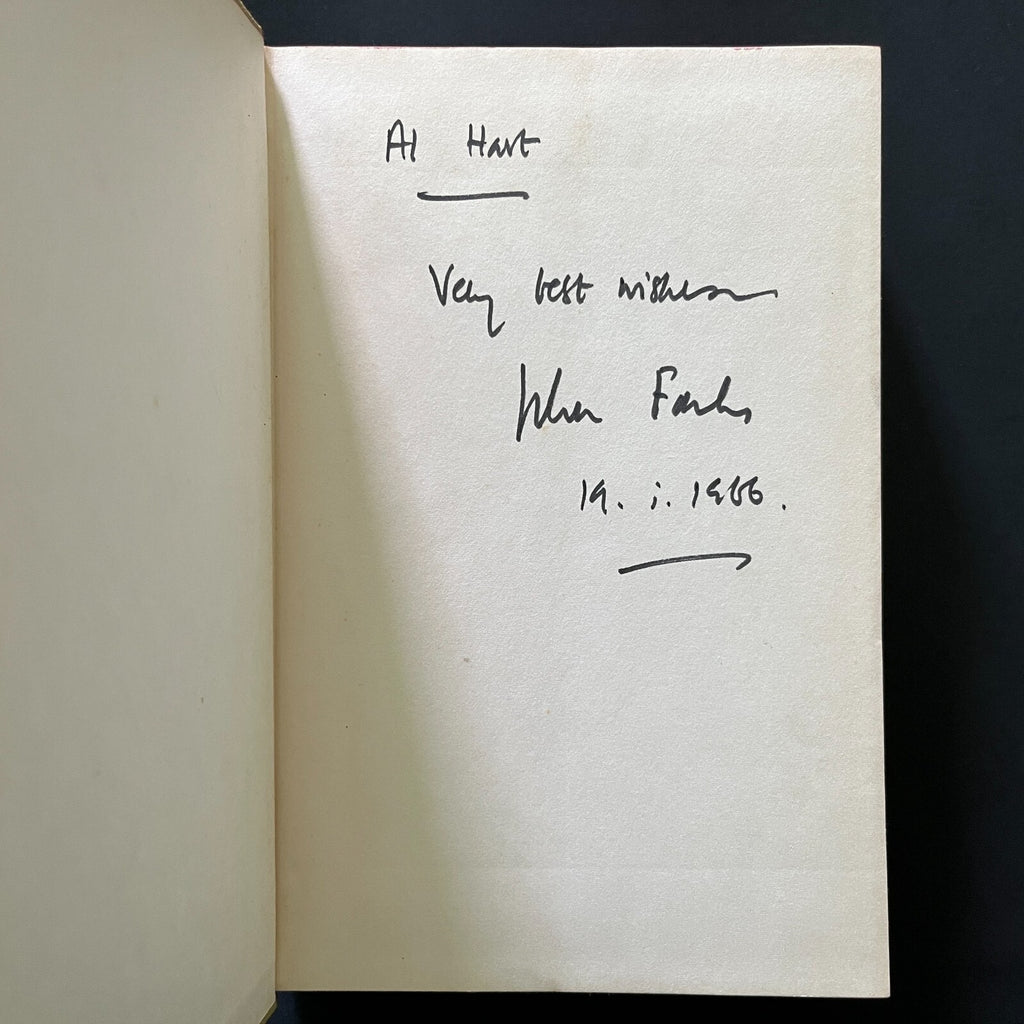 Al Hart
Very best wishes
John Fowles
19. i. 1966.